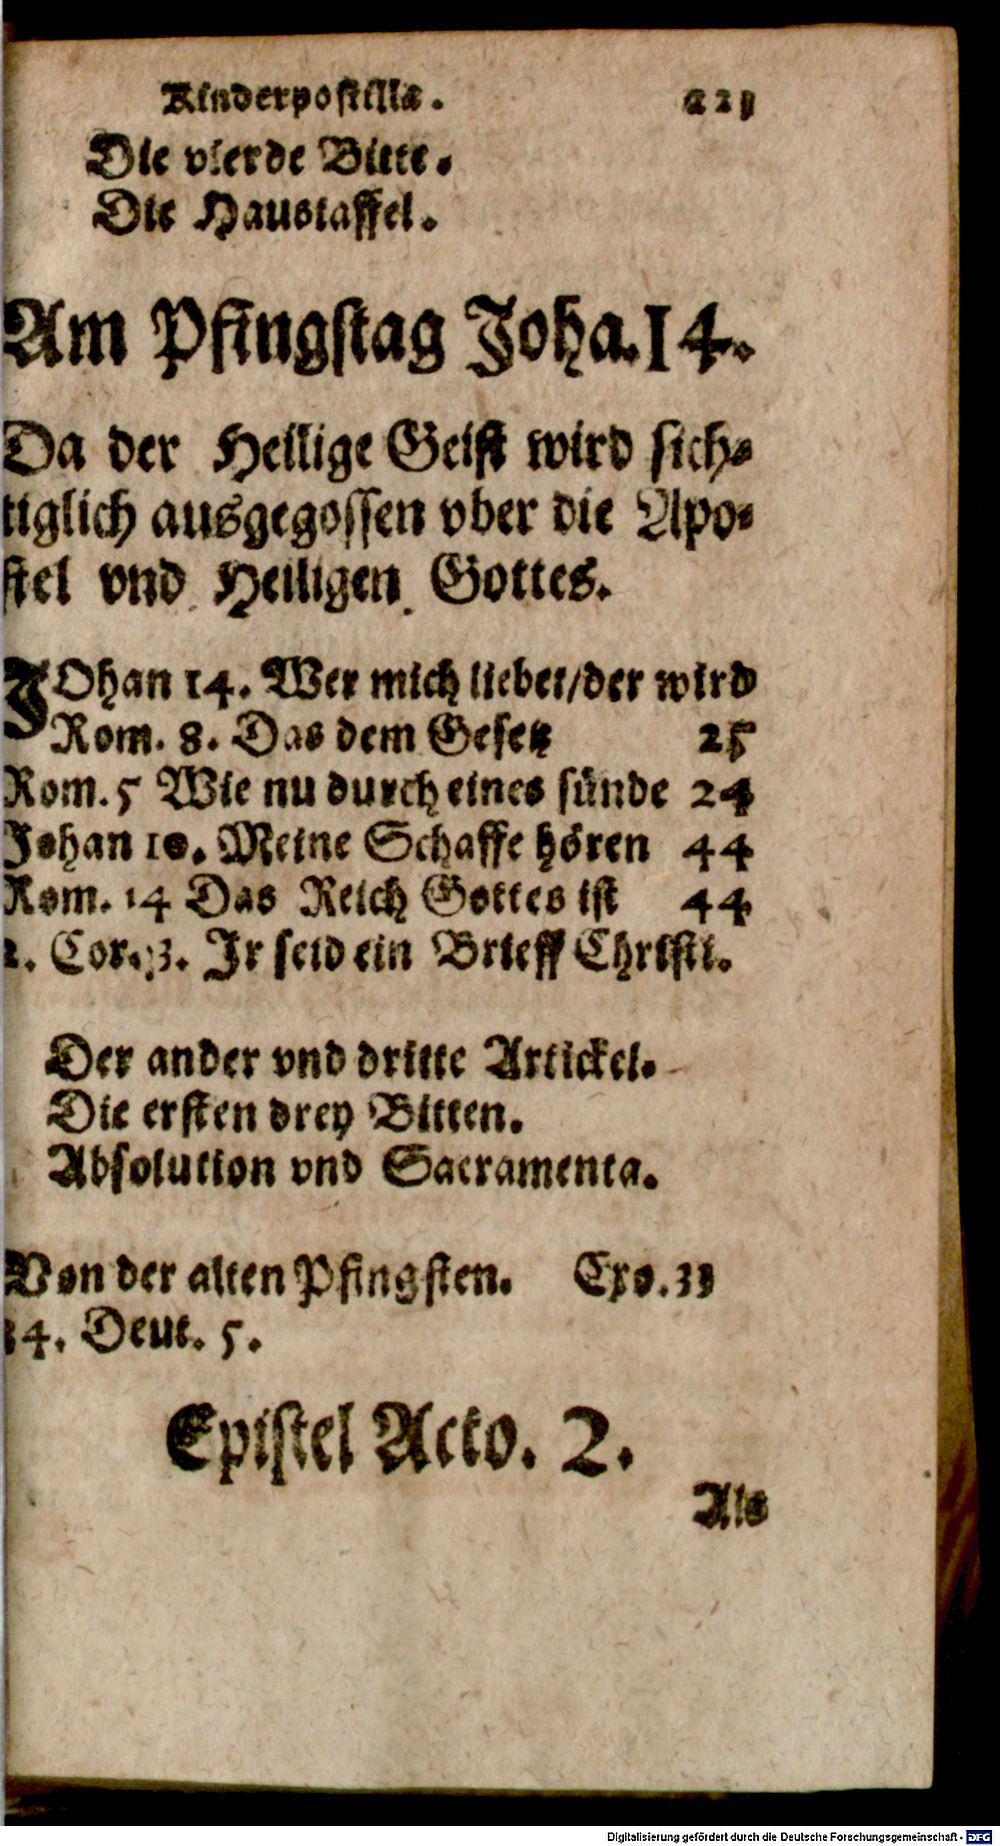 Kinderpostilla. 221
Die vierde Bitte.
Die Haustaffel.
Am Pfingstag Joha. 14.
Da der Heilige Geist wird sich-
tiglich ausgegossen vber die Apo-
stel vnd Heiligen Gottes.
JOhan 14. Wer mich liebet/der wird
Rom. 8. Das dem Gesetz 25
Rom. 5 Wie nu durch eines sünde 24
Johan 10. Meine Schaffe hören 44
Rom. 14 Das Reich Gottes ist 44
2. Cor. 3. Jr seid ein Brieff Christi.
Der ander vnd dritte Artickel.
Die ersten drey Bitten.
Absolution vnd Sacramenta.
Von der alten Pfingsten. Exo. 33
34. Deut. 5.
Epistel Acto. 2.
Als
Digitalisierung gefördert durch die Deutsche Forschungsgemeinschaft - DFG